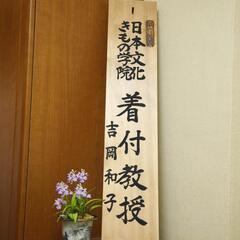 日本文化
きもの学院
着付教授
吉岡和子